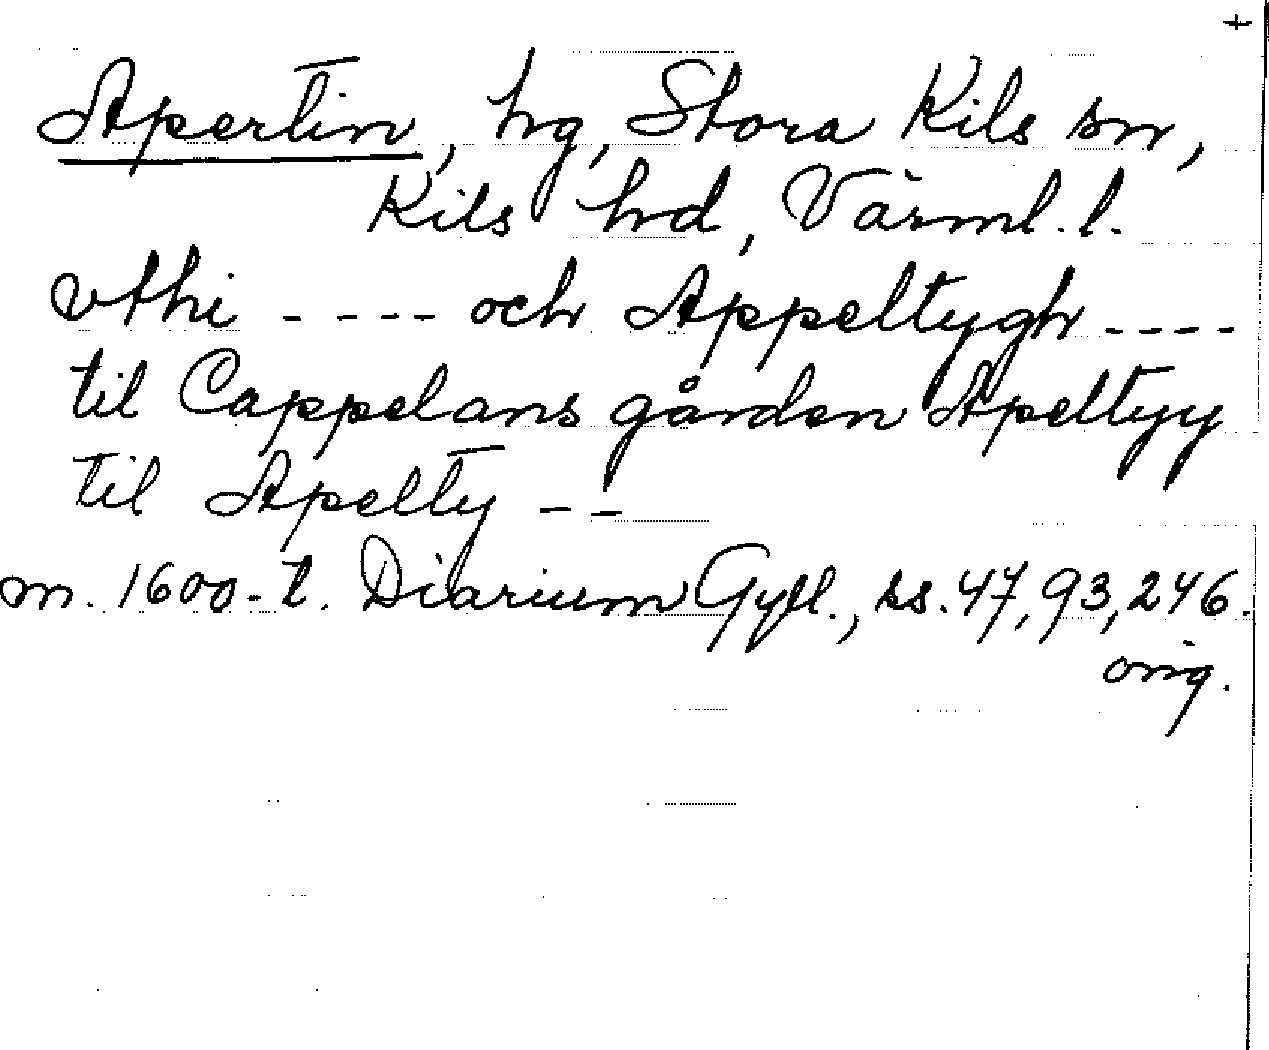 +
Apertin, hg, Stora Kils sn,
Kils hd, Värml. l.
vthi ---- och Appeltygh ----
til Cappelans gården Apeltyy
til Apelty --
m. 1600-t. Diarium Gyll., ss. 47, 93, 246.
orig.